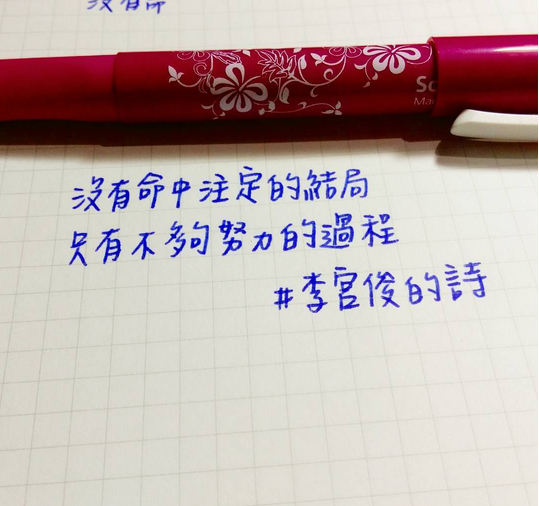 沒有命
Sc
Ma
沒有命中注定的結局
只有不夠努力的過程
#李宮俊的詩